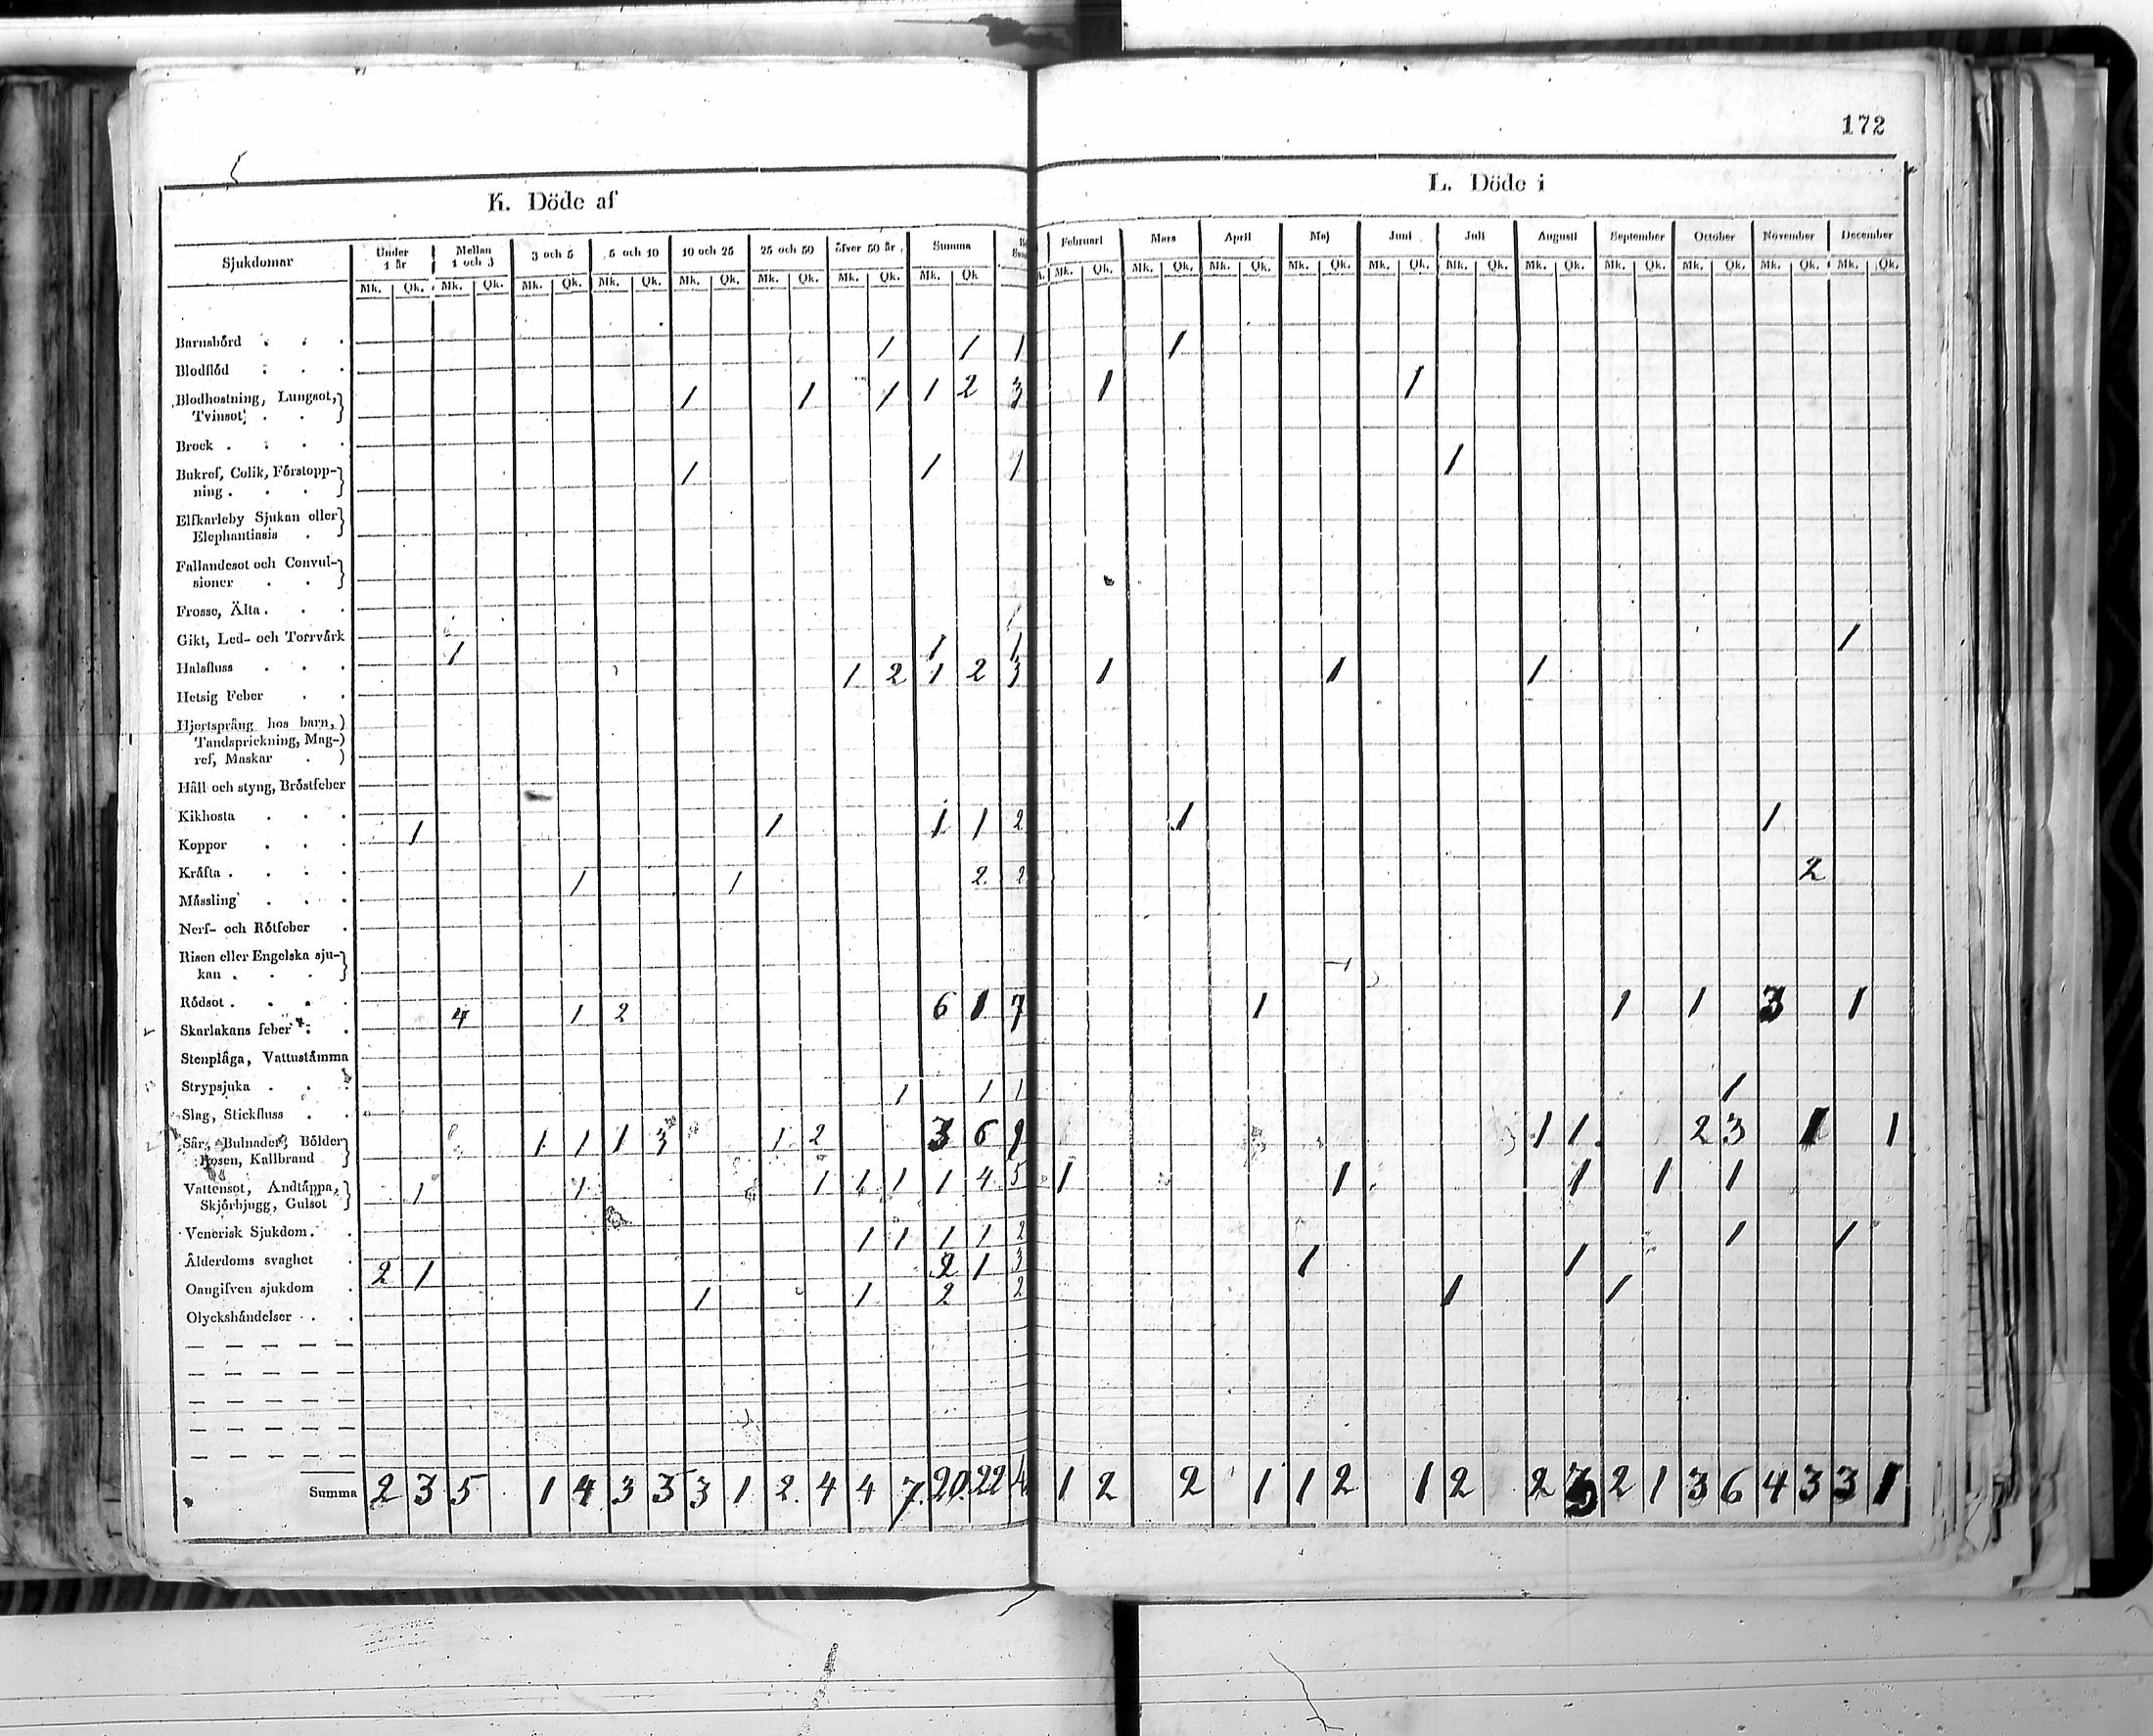 172
K. Döde af
L. Döde i
Sjukdomar Under 1 år Mellan 1 och 3 3 och 5 5 och 10 10 och 25 25 och 50 öfver 50 år Summa
Februari Mars April Maj Juni Juli Augusti September October November December
Mk. Qk. Mk. Qk. Mk. Qk. Mk. Qk. Mk. Qk. Mk. Qk. Mk. Qk. Mk. Qk
Mk. Qk. Mk. Qk. Mk. Qk. Mk. Qk. Mk. Qk. Mk. Qk. Mk. Qk. Mk. Qk. Mk. Qk. Mk. Qk. Mk. Qk.
Barnsbörd 1 1 1 1
Blodflöd
Blodhostning, Lungsot, 1 1 1 1 2 3 1 1
Tvinsot,
Brock
Bukref, Colik, Förstopp- 1 1 1 1
ning
Elfkarleby Sjukan eller
Elephantiasis
Fallandesot och Convul-
sioner
Frossa, Älta
Gikt, Led- och Torrvärk 1 1 1 1
Halsfluss 1 2 1 2 3 1 1 1
Hetsig Feber
Hjertsprång hos barn,
Tandsprickning, Mag-
ref, Maskar
Håll och styng, Bröstfeber
Kikhosta 1 1 1 1 2 1 1
Koppor
Kräfta 1 1 2 2 2
Mässling
Nerf- och Rötfeber
Risen eller Engelska sju-
kan
Rödsot 4 1 2 6 1 7 1 1 1 3 1
Skarlakans feber
Stenplåga, Vattustämma
Strypsjuka 1 1 1 1
Slag, Stickfluss
Sår, Bulnader, Bölder 1 1 1 3 1 2 3 6 9 1 1 2 3 1 1
Rosen, Kallbrand
Vattensot, Andtäppa, 1 1 1 1 1 1 4 5 1 1 1 1 1
Skjörbjugg, Gulsot
Venerisk Sjukdom 1 1 1 1 2 1 1
Ålderdoms svaghet 2 1 2 1 3 1 1
Oangifven sjukdom 1 1 2 2 1 1
Olyckshändelser
Summa 2 3 5 1 4 3 3 3 1 2 4 4 7 20 22 4 1 2 2 1 1 2 1 2 2 3 2 1 3 6 4 3 3 1